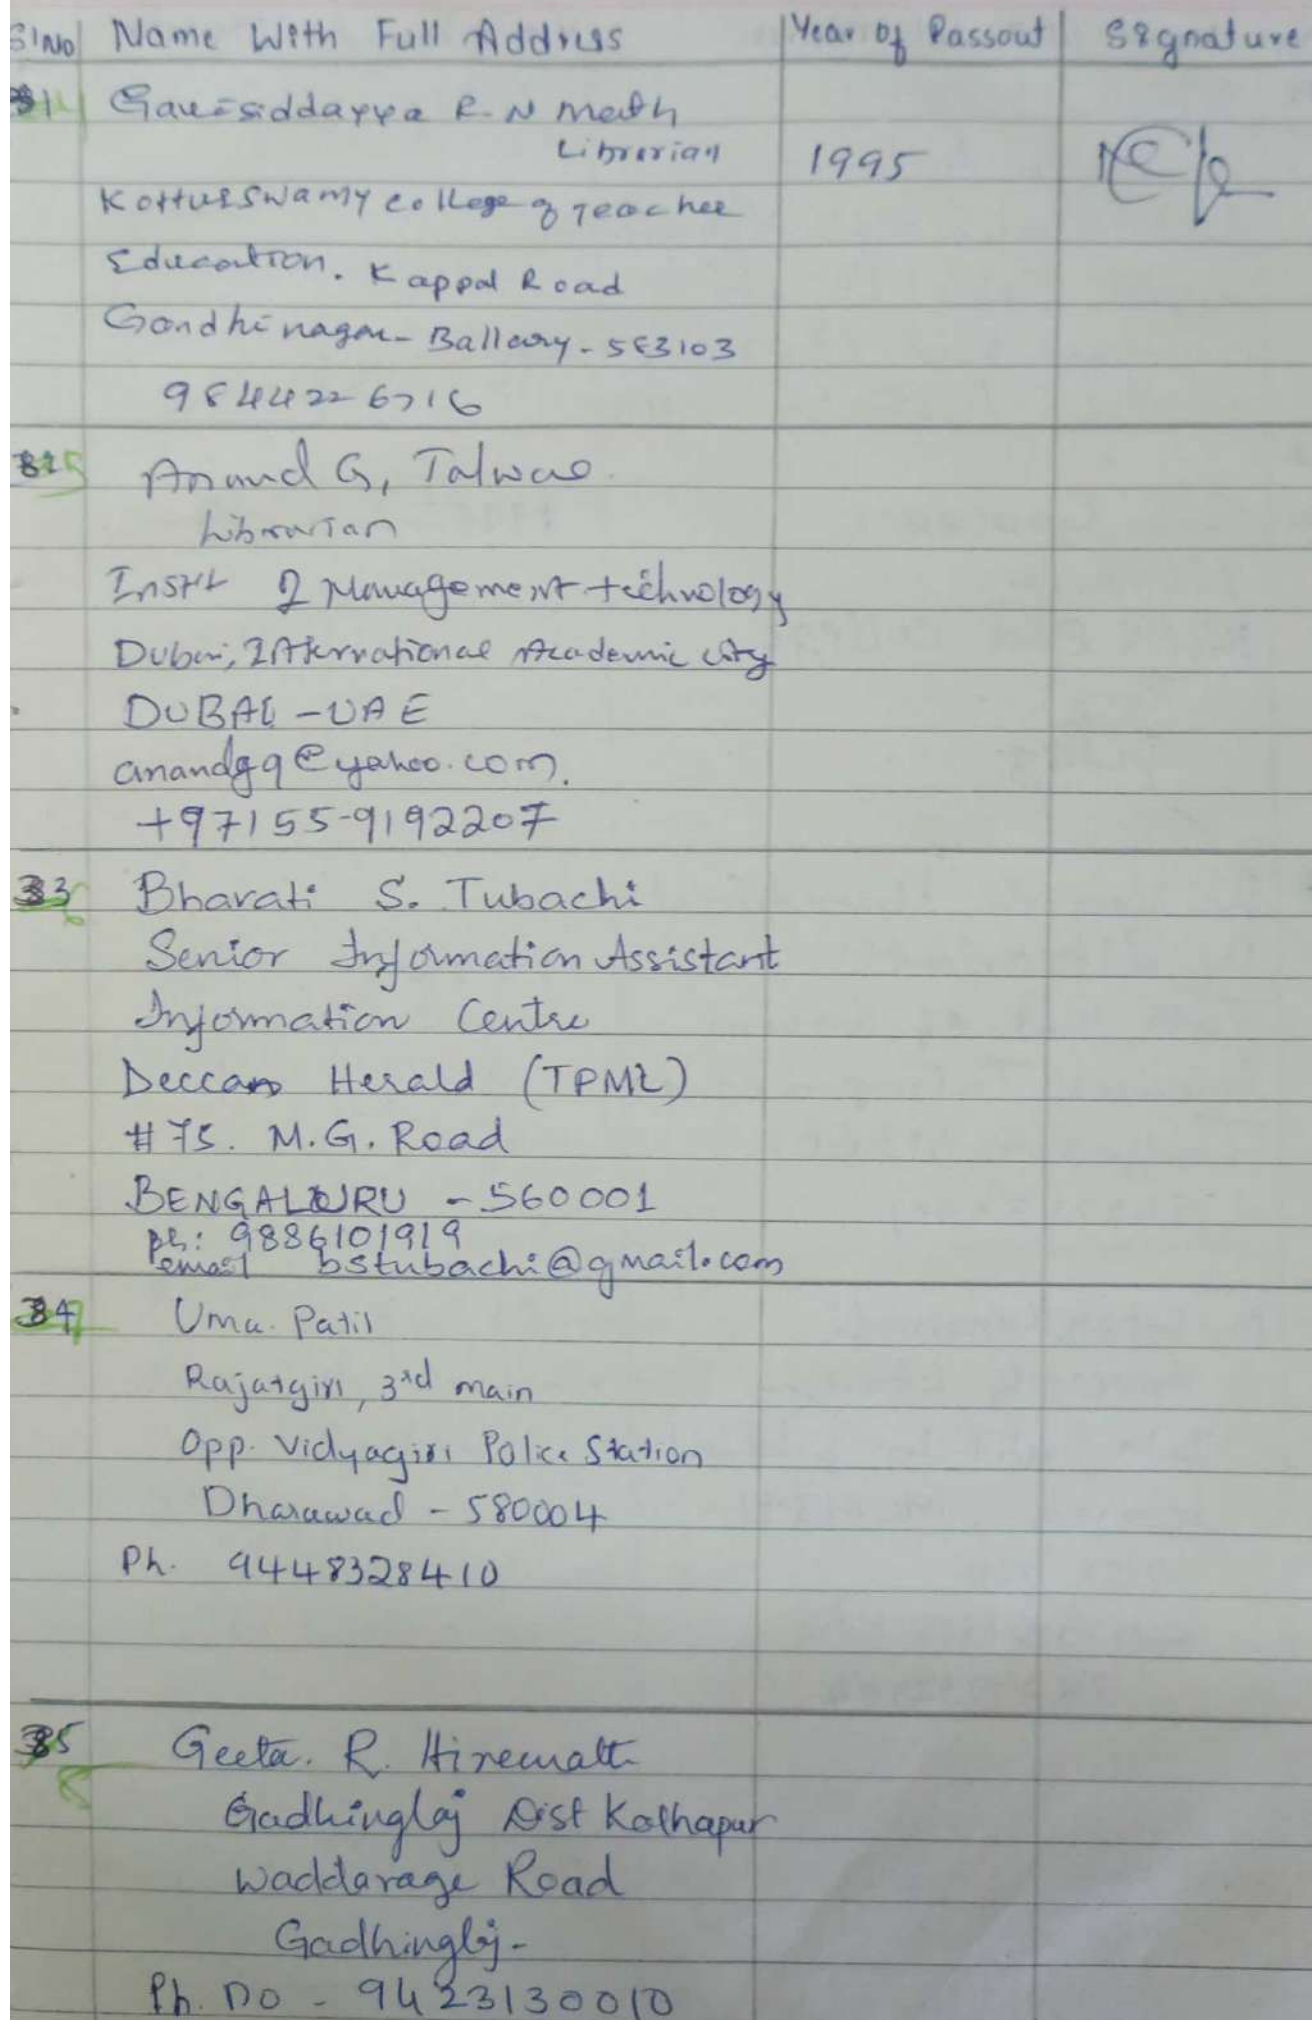 Sl No Name With Full Address Year of Passout Signature
31 Gavisiddayya R.N Math
Librarian 1995
Kotturswamy College of Teacher
Education. Kappal Road
Gandhinagar - Ballary - 583103
9844226716
Anand G, Talwar
Librarian
Instt of Management technology
Dubai, International Academic city
DUBAI - UAE
anandg9@yahoo.com.
+97155-9192207
33 Bharati S. Tubachi
Senior Information Assistant
Information Centre
Deccan Herald (TPML)
#75. M.G. Road
BENGALURU - 560001
ph: 9886101919
email bstubachi@gmail.com
34 Uma. Patil
Rajatgiri, 3rd main
Opp. Vidyagiri Police Station
Dharawad - 580004
Ph. 9448328410
35 Geeta. R. Hiremath
Gadhinglaj Dist Kolhapur
Waddarage Road
Gadhinglaj -
Ph. No - 9423130010